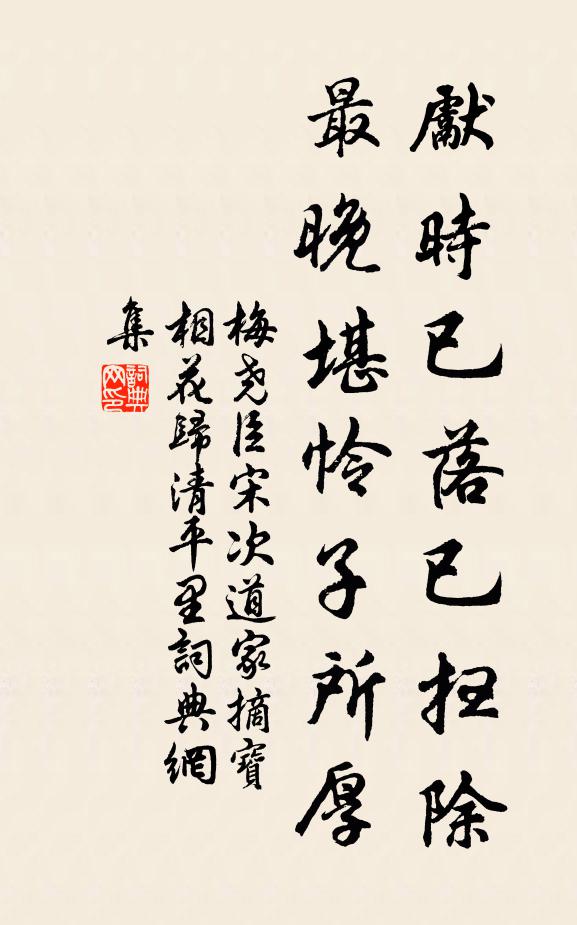 獻時已落已扫除
最晚堪怜子所厚
梅尧臣宋次道家摘寶
相花歸清平里詞典網
集
詞典
网印